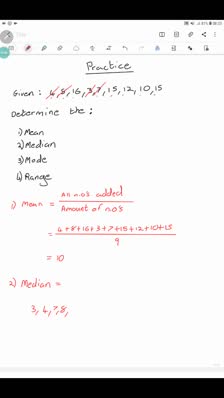 Practice
Given: 4, 8, 16, 3, 7, 15, 12, 10, 15
Determine the:
1) Mean
2) Median
3) Mode
4) Range
1) Mean = All n.o's added
Amount of n.o's
= 4+8+16+3+7+15+12+10+15
9
= 10
2) Median =
3, 4, 7, 8,